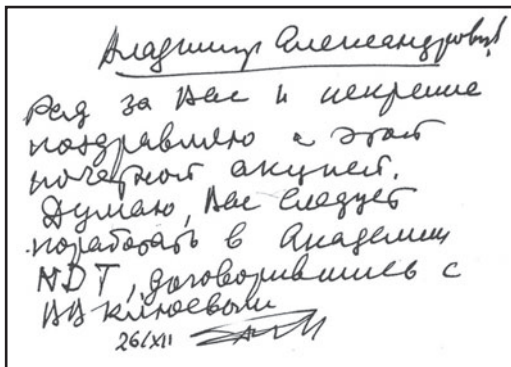 Владимир Александрович!
Рад за Вас и искренне
поздравляю с этой
почетной акцией.
Думаю, Вас следует
поработать в Академии
NDT, договорившись с
ВВ Клюевым
26/XII